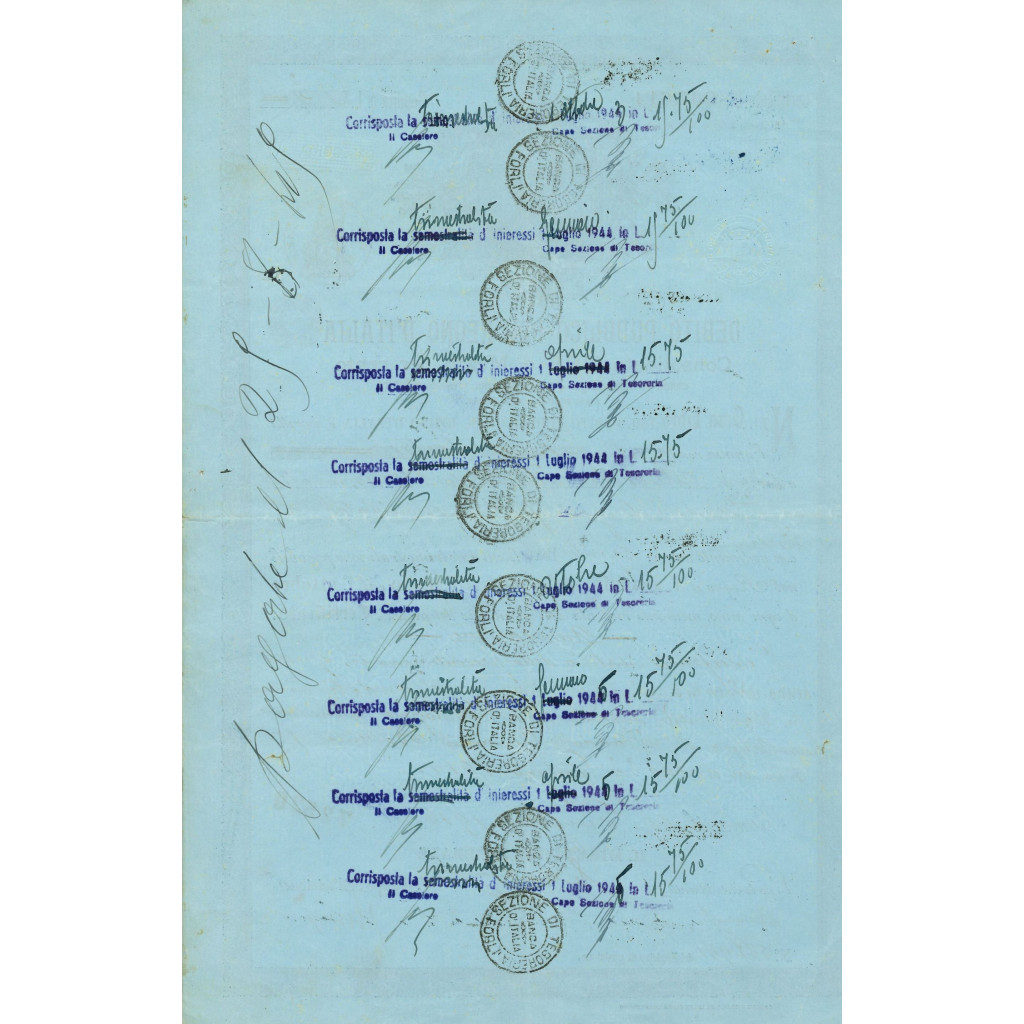 SEZIONE DI TESORERIA FORLI'
BANCA D'ITALIA
trimestralità
Corrisposta la semestralità d' interessi 1 Luglio 1943 in L 15.75/100
Il Cassiere Capo Sezione di Tesoreria
SEZIONE DI TESORERIA FORLI'
BANCA D'ITALIA
trimestralità Gennaio
Corrisposta la semestralità d' interessi 1 Luglio 1944 in L 15 75/100
Il Cassiere Capo Sezione di Tesoreria
SEZIONE DI TESORERIA FORLI'
BANCA D'ITALIA
trimestralità aprile
Corrisposta la semestralità d' interessi 1 Luglio 1944 in L 15.75
Il Cassiere Capo Sezione di Tesoreria
SEZIONE DI TESORERIA FORLI'
BANCA D'ITALIA
trimestralità
Corrisposta la semestralità d' interessi 1 Luglio 1944 in L 15.75
Il Cassiere Capo Sezione di Tesoreria
SEZIONE DI TESORERIA FORLI'
BANCA D'ITALIA
trimestralità ottobre
Corrisposta la semestralità d' interessi 1 Luglio 1944 in L 15 75/100
Il Cassiere Capo Sezione di Tesoreria
SEZIONE DI TESORERIA FORLI'
BANCA D'ITALIA
trimestralità Gennaio
Corrisposta la semestralità d' interessi 1 Luglio 1945 in L 15 75/100
Il Cassiere Capo Sezione di Tesoreria
SEZIONE DI TESORERIA FORLI'
BANCA D'ITALIA
trimestralità aprile
Corrisposta la semestralità d' interessi 1 Luglio 1945 in L 15 75/100
Il Cassiere Capo Sezione di Tesoreria
SEZIONE DI TESORERIA FORLI'
BANCA D'ITALIA
trimestralità
Corrisposta la semestralità d' interessi 1 Luglio 1945 in L 15 75/100
Il Cassiere Capo Sezione di Tesoreria
SEZIONE DI TESORERIA FORLI'
BANCA D'ITALIA